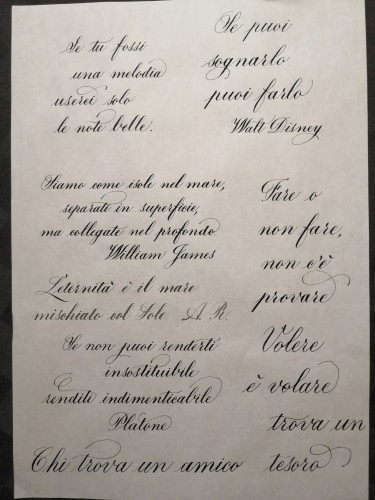 Se tu fossi
una melodia
userei solo
le note belle.
Se puoi
sognarlo
puoi farlo
Walt Disney
Siamo come isole nel mare,
separate in superficie,
ma collegate nel profondo
William James
Fare o
non fare,
non c'è
provare
L'eternità è il mare
mischiato col Sole A. R.
Se non puoi renderti
insostituibile
renditi indimenticabile
Platone
Volere
è volare
Chi trova un amico
trova un
tesoro